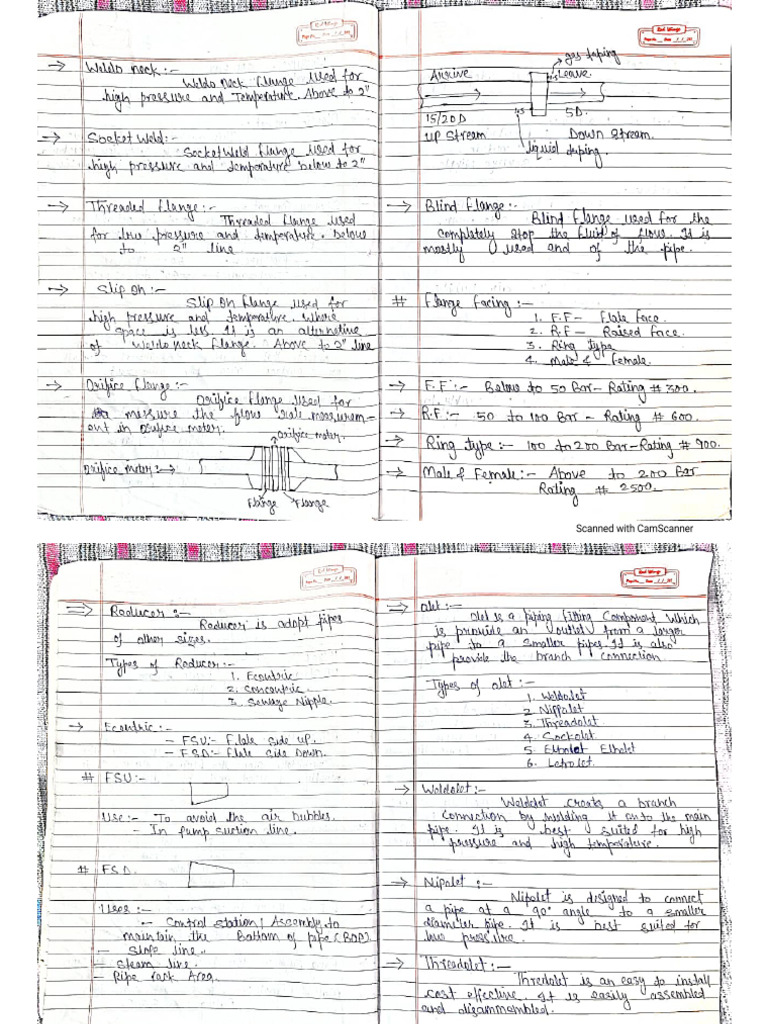 → Weldo neck :-
Weldo neck flange used for
high pressure and Temperature. Above to 2"
→ Socket Weld:-
Socket Weld flange used for
high pressure and temperature below to 2"
→ Threaded flange :-
Threaded flange used
for low pressure and temperature. Below
to 2" line
→ Slip on :-
Slip on flange used for
high pressure and temperature. Where
space is less. It is an alternetive
of Weldo neck flange. Above to 2" line
→ Orifice flange :-
Orifice flange used for
messure the flow rate measurem-
ent in Orifice meter.
Orifice meter.
Orifice meter :→
Flange Flange
gas taping
Arrive Leave
15/20D 5D
up stream Down stream
liquid taping.
→ Blind flange :-
Blind flange used for the
completely stop the fluid of flow. It is
mostly used end of the pipe.
# Flange facing :-
1. F.F - Flate face
2. R.F - Raised face.
3. Ring type
4. Male & Female.
→ F.F :- Below to 50 Bar - Rating # 300.
→ R.F :- 50 to 100 Bar - Rating # 600.
→ Ring type :- 100 to 200 Bar - Rating # 900.
→ Male & Female :- Above to 200 Bar
Rating # 2500.
Scanned with CamScanner
⇒ Raducer :-
Raducer is adopt pipes
of other sizes.
Types of Raducer :-
1. Ecentric
2. Concentric
3. Sewage Nipple.
→ Ecentric :-
- FSU :- Flate side up.
- F.S.D :- Flate side Down.
# FSU :-
Use :- To avoid the air bubbles.
- In pump suction line.
# F.S.D.
Uses :-
- Control station / Assembly to
maintain the Bottom of pipe (BOP)
- Slope line.
- Steam line.
- Pipe rack Area.
⇒ Olet :-
Olet is a piping fitting component which
is provide an outlet from a larger
pipe to a smaller pipes. It is also
provide the branch connection
Types of olet :-
1. Weldolet
2. Nippolet
3. Threadolet
4. Sockolet
5. Elbolet
6. Latrolet.
→ Weldolet :-
Weldolet creats a branch
connection by molding it onto the main
pipe. It is best suited for high
pressure and high temperature.
→ Nipolet :-
Nipolet is designed to connect
a pipe at a 90° angle to a smaller
diameter pipe. It is best suited for
→ Threadolet :-
Thredolet is an easy to install
cost effective. It is easily assembled
and disammembled.